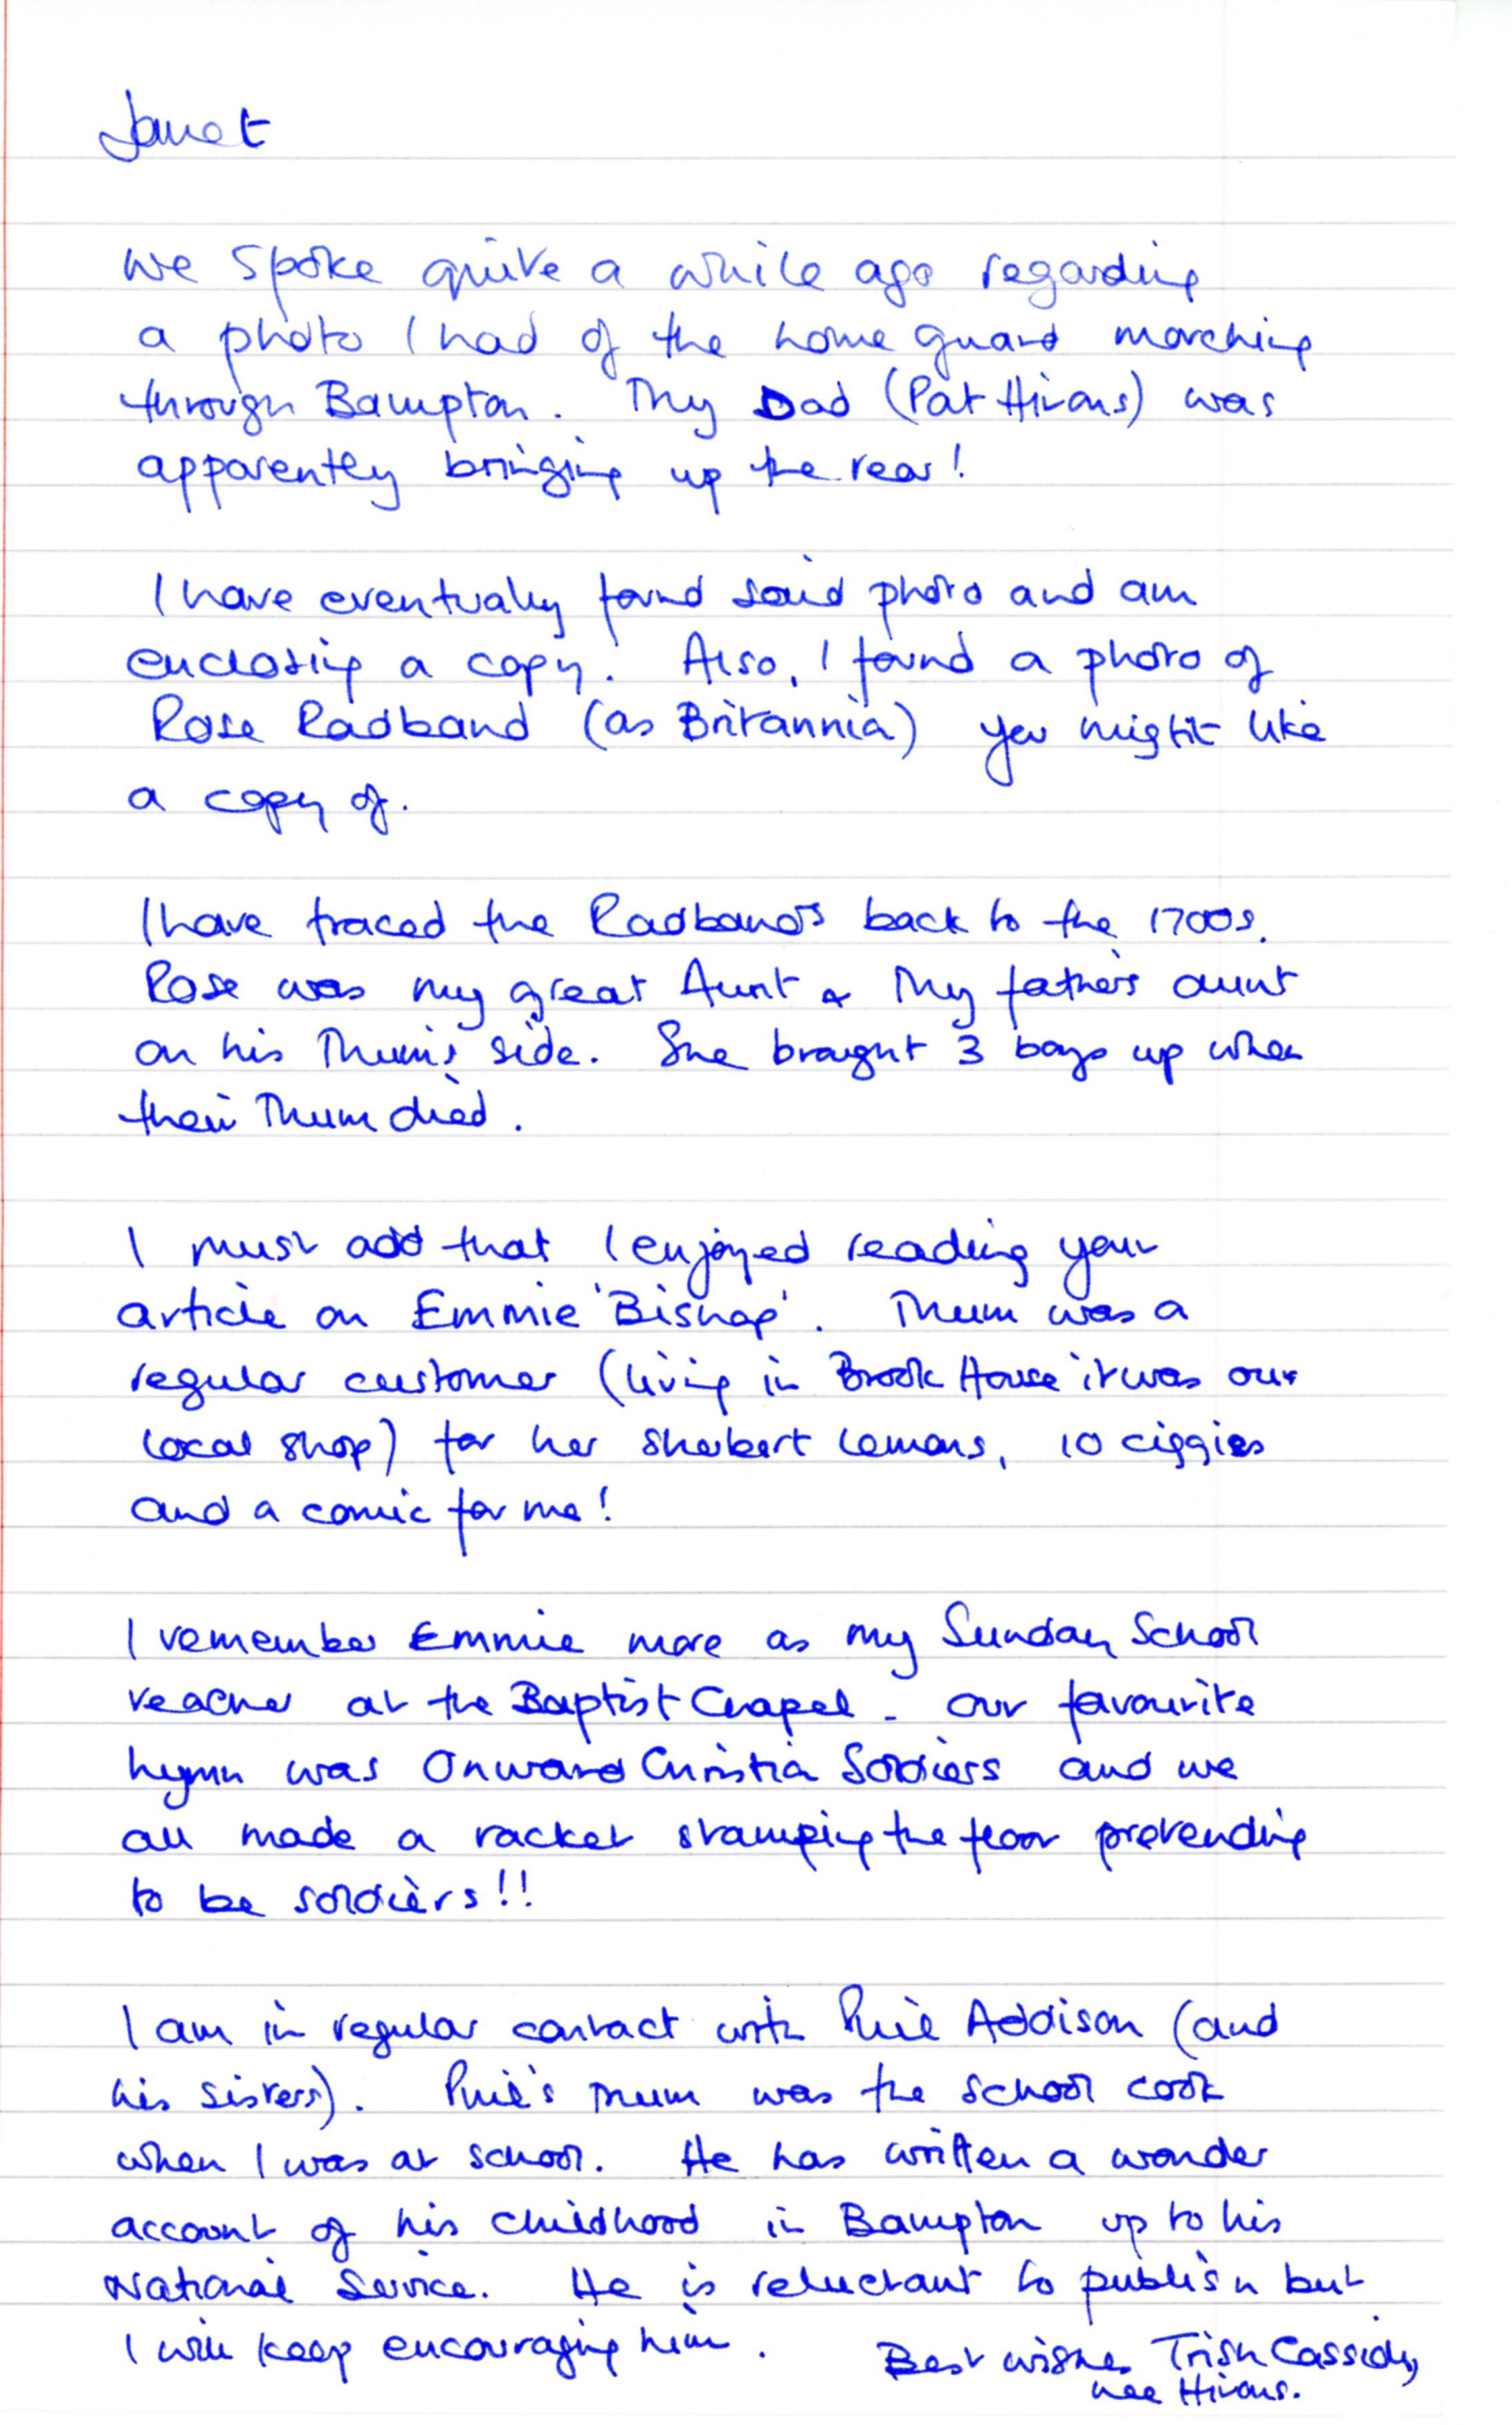 Janet
We spoke quite a while ago regarding
a photo I had of the home guard marching
through Bampton. My Dad (Pat Hivons) was
apparently bringing up the rear!
I have eventually found said photo and am
enclosing a copy. Also, I found a photo of
Rose Radband (as Britannia) you might like
a copy of.
I have traced the Radbands back to the 1700s.
Rose was my great Aunt & My father's aunt
on his Mum's side. She brought 3 boys up when
their Mum died.
I must add that I enjoyed reading your
article on Emmie 'Bishop'. Mum was a
regular customer (living in Brook House it was our
local shop) for her sherbert lemons, 10 ciggies
and a comic for me!
I remember Emmie more as my Sunday School
teacher at the Baptist Chapel - our favourite
hymn was Onward Christian Soldiers and we
all made a racket stamping the floor pretending
to be soldiers!!
I am in regular contact with Phil Addison (and
his sisters). Phil's Mum was the school cook
when I was at school. He has written a wonder
account of his childhood in Bampton up to his
National Service. He is reluctant to publish but
I will keep encouraging him.
Best wishes Trish Cassidy,
nee Hivons.